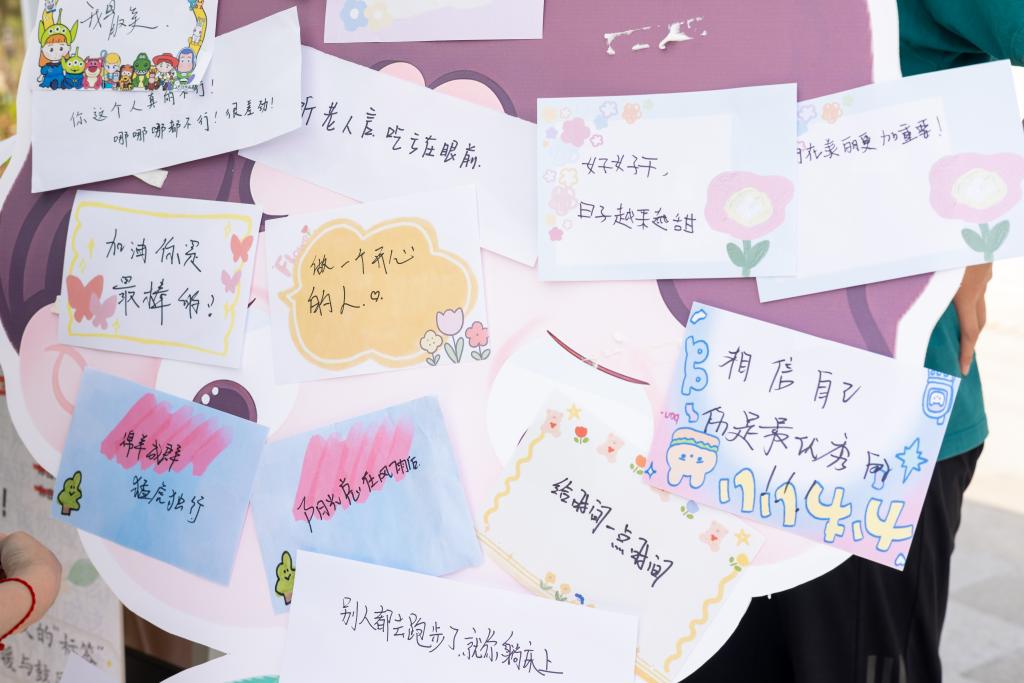 我最美.
你这个人真的不行!
哪哪哪都不行!很差劲!
听老人言吃亏在眼前.
好好干,
日子越来越甜
在美丽更加重要!
加油你是
最棒的!
Flower
做一个开心
的人.♡
相信自己
你是最优秀的
绵羊成群
猛虎独行
阳光总在风雨后
给时间一点时间
别人都去跑步了,就你躺床上
的"标签"